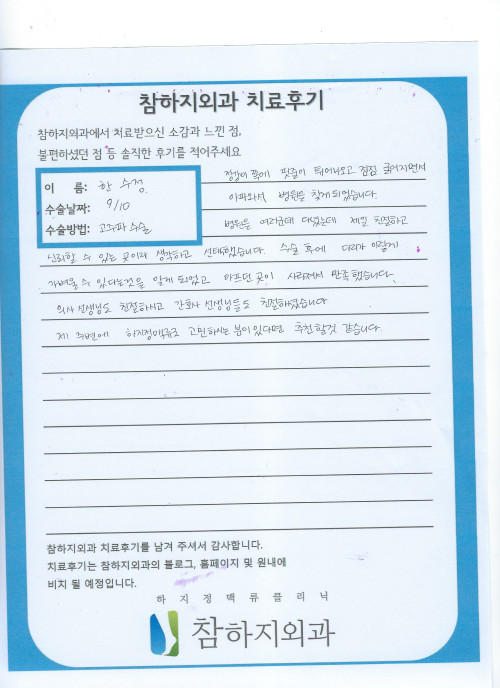 참하지외과 치료후기
참하지외과에서 치료받으신 소감과 느낀 점,
불편하셨던 점 등 솔직한 후기를 적어주세요
이 름: 한 수정
수술날짜: 9/10
수술방법: 고주파 수술
정강이 쪽에 핏줄이 튀어나오고 점점 굵어지면서
아파와서 병원을 찾게되었습니다.
병원은 여러군데 다녔는데 제일 친절하고
신뢰할 수 있는 곳이라 생각하고 선택했습니다. 수술 후에 다리가 이렇게
가벼울 수 있다는것을 알게 되었고 아프던 곳이 사라져서 만족했습니다.
의사 선생님도 친절하시고 간호사 선생님들도 친절하셨습니다
제 주변에 하지정맥류로 고민하시는 분이 있다면 추천할것 같습니다.
참하지외과 치료후기를 남겨 주셔서 감사합니다.
치료후기는 참하지외과의 블로그, 홈페이지 및 원내에
비치 될 예정입니다.
하지정맥류클리닉
참하지외과